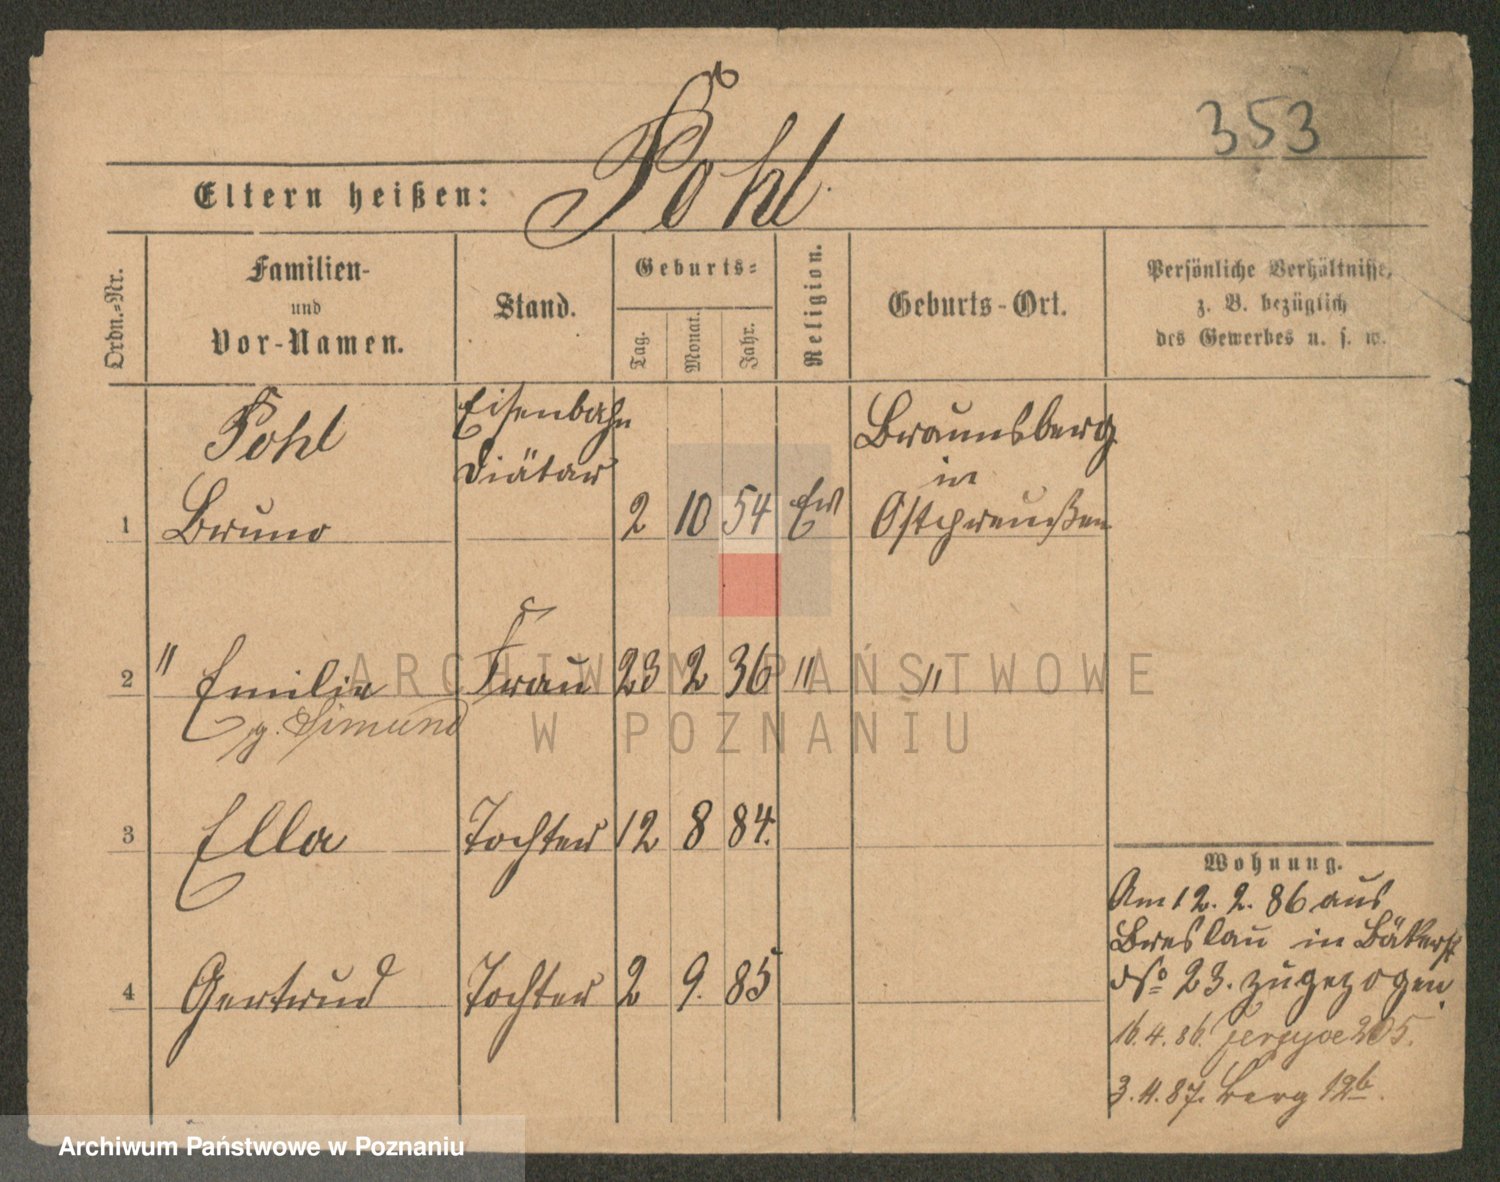 353
Pohl
Eltern heißen:
Ordn.-Nr.
Familien-
und
Vor-Namen.
Stand.
Geburts-
Tag.
Monat.
Jahr.
Religion.
Geburts-Ort.
Persönliche Verhältnisse,
z. B. bezüglich
des Gewerbes u. s. w.
1 Pohl
Bruno
Eisenbahn
Diätar
2 10 54 Ev
Braunsberg
in
Ostpreußen
2 " Emilie Frau 23 2 36 " "
g. Simund
3 Ella Tochter 12 8 84.
4 Gertrud Tochter 2 9. 85
Wohnung.
Am 12. 2. 86 aus
Breslau in Bäkerst
23. zugezogen.
16. 4. 86. 205.
3. 4. 87. Berg 12b.
ARCHIWUM PAŃSTWOWE
W POZNANIU
Archiwum Państwowe w Poznaniu